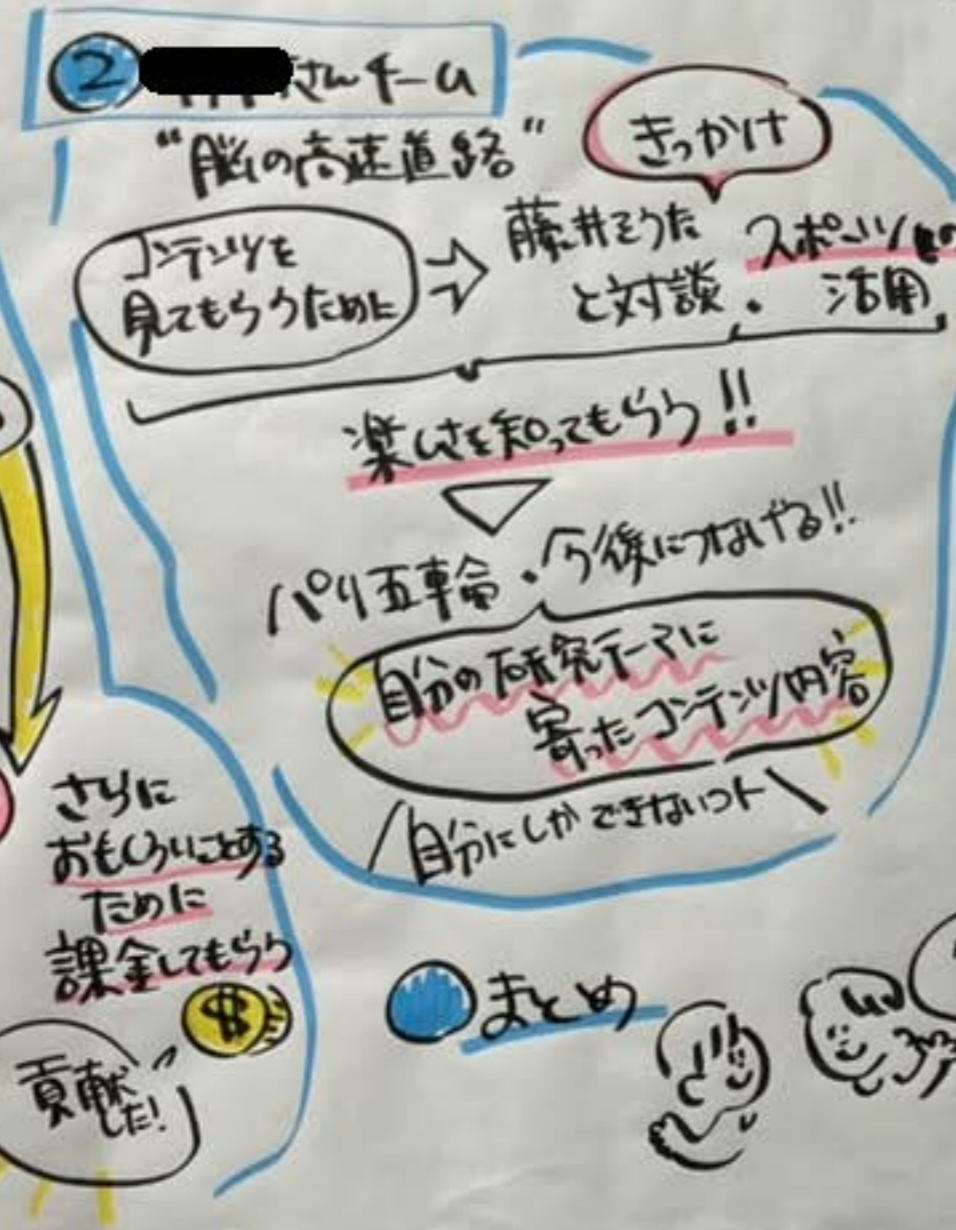 ② さんチーム
"脳の高速道路"
きっかけ
コンテンツを
見てもらうために
⇨
藤井そうた
と対談・
スポーツ
活用
楽しさを知ってもらう!!
パリ五輪・今後につなげる!!
自分の研究テーマに
寄ったコンテンツ内容
自分にしかできないコト
さらに
おもしろいことする
ために
課金してもらう
$
貢献
した!
まとめ